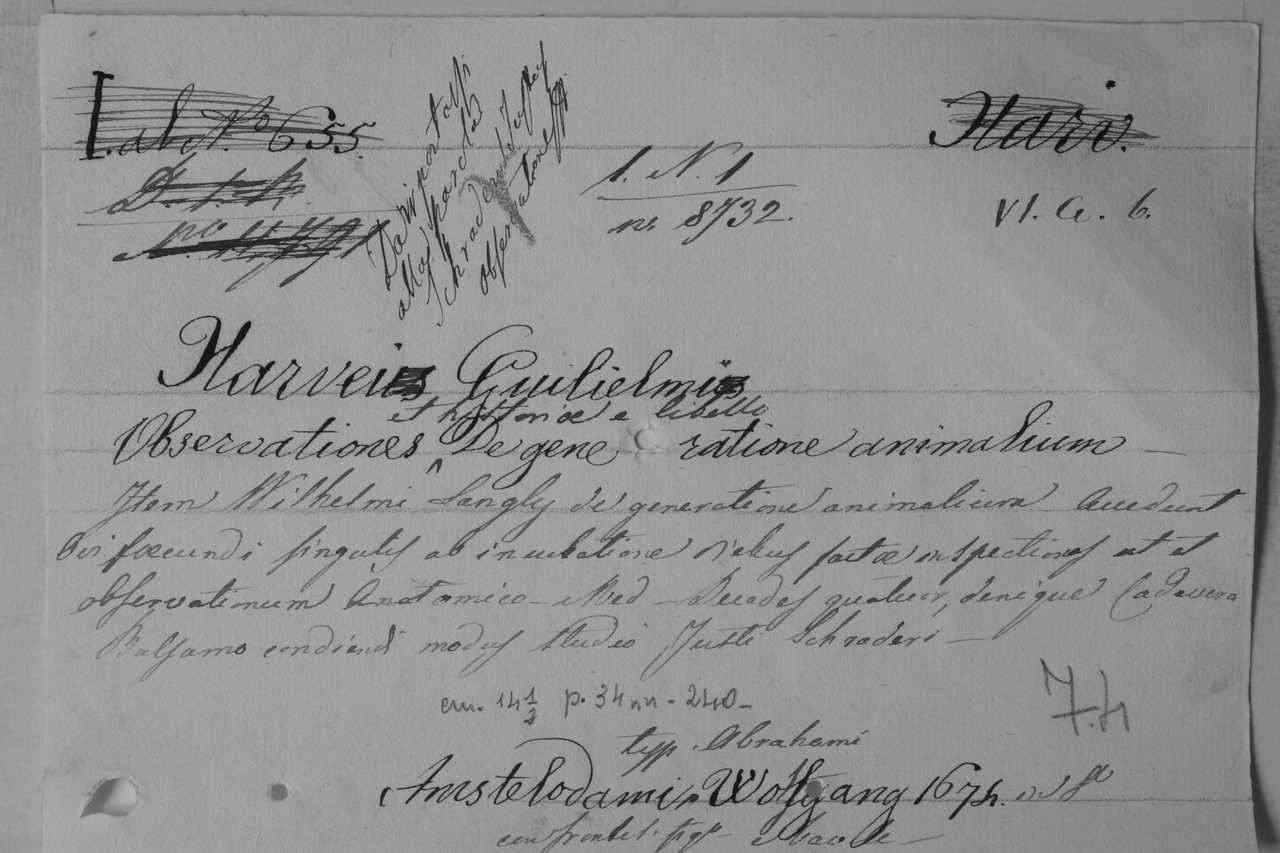 Lab. No 655.
Harv.
Da riportarsi
alla parola
Schrader Justus
observationes
1. N. 1
n. 8732.
VI. a. 6.
Harvei Guilielmi
et historiæ e libello
Observationes De gene ratione animalium
Item Wilhelmi Langly de generatione animalium accedunt
Ovi fœcundi singulis ab incubatione diebus factæ inspectiones ut et
observationum Anatomico-Med Decades quatuor, denique Cadavera
Balsamo condiendi modus studio Justi Schraderi
cm. 14 1/2 p. 34 nn - 240
7.4
typ. Abrahami
Amstelodami, Wolfgang 1674. in 8°
con frontesp. fig°